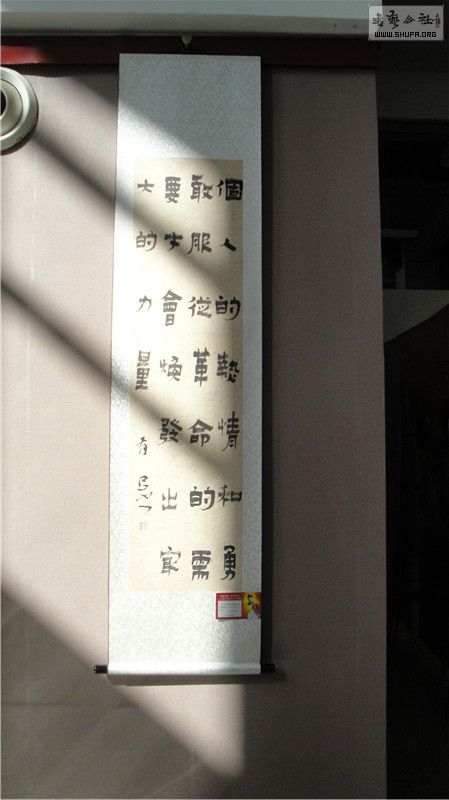 書藝公社
WWW.SHUFA.ORG
個人的熱情和勇
敢服從革命的需
要才會煥發出宏
大的力量